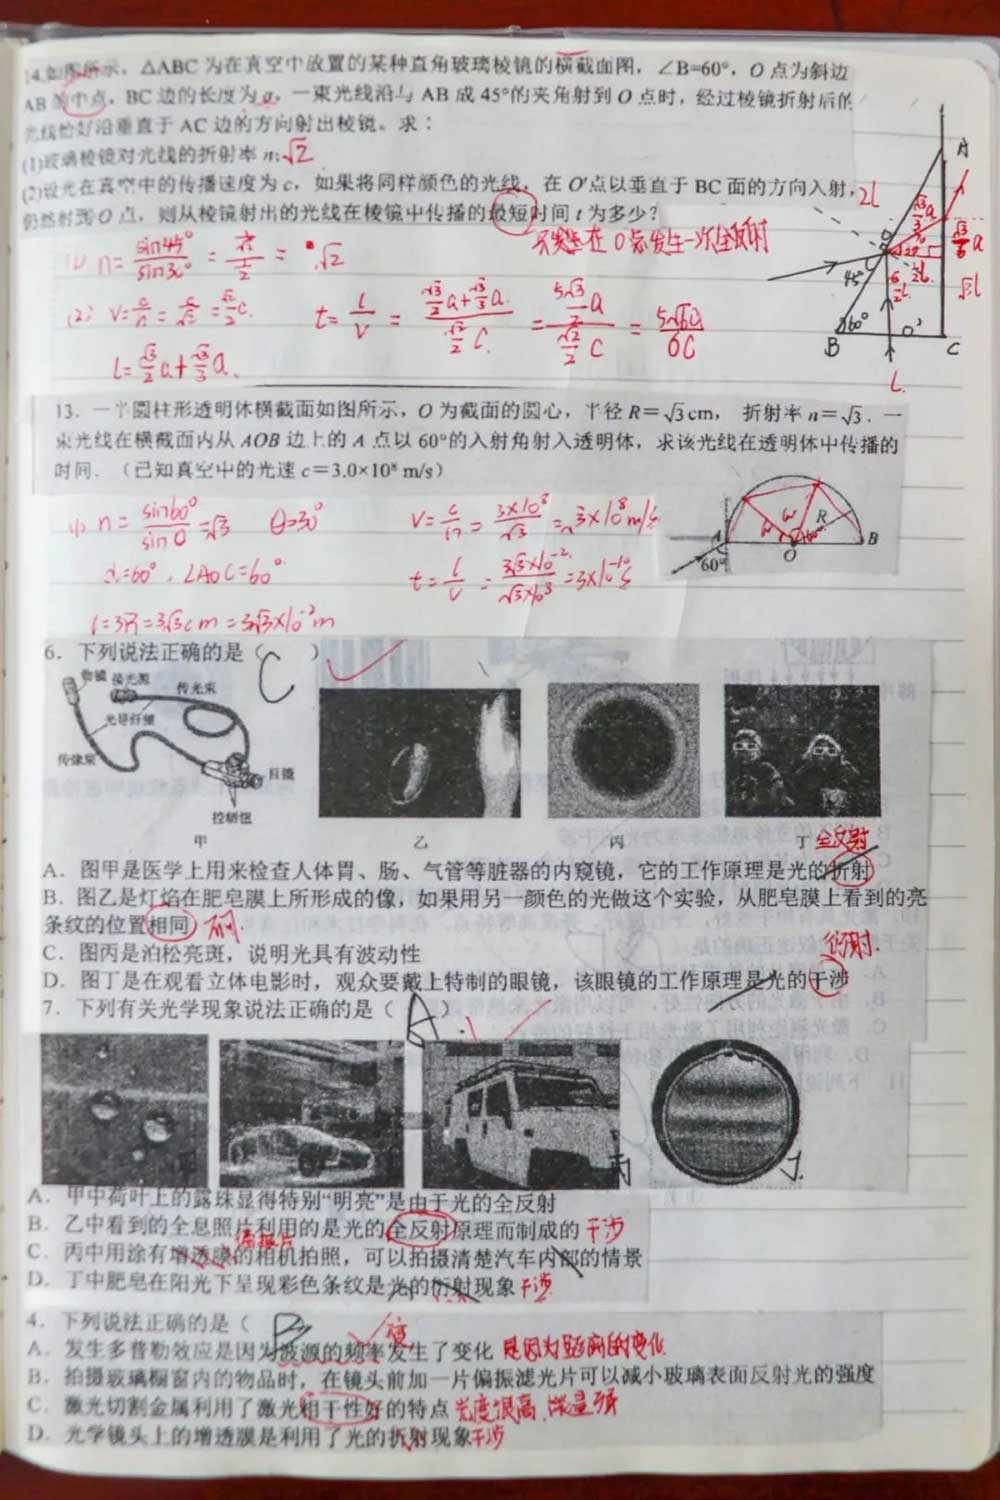 14.如图所示，△ABC 为在真空中放置的某种直角玻璃棱镜的横截面图，∠B=60°，O 点为斜边
AB 的中点，BC 边的长度为 a。一束光线沿与 AB 成 45°的夹角射到 O 点时，经过棱镜折射后的
光线恰好沿垂直于 AC 边的方向射出棱镜。求：
(1)玻璃棱镜对光线的折射率 n; √2
(2)设光在真空中的传播速度为 c，如果将同样颜色的光线，在 O′点以垂直于 BC 面的方向入射，
仍然射到 O 点，则从棱镜射出的光线在棱镜中传播的最短时间 t 为多少？
在 O 点发生一次全反射
(1) n= sin45°/sin30° = = √2
(2) V= c/n = c/√2 = √2/2 c.
t= l/v = (√3/2 a+√3/3 a)/(√2/2 C) = =
L= √3/2 a+ √3/3 a.
A
2L
√3/3 a
√3/6 a
√3L
O
45°
60°
B
O′
C
L
13．一半圆柱形透明体横截面如图所示，O 为截面的圆心，半径 R＝√3 cm， 折射率 n＝√3．一
束光线在横截面内从 AOB 边上的 A 点以 60°的入射角射入透明体，求该光线在透明体中传播的
时间．（已知真空中的光速 c＝3.0×10⁸ m/s）
(1) n= sin60°/sinθ =√3 θ=30°
V= c/n = 3×10⁸/√3 =√3×10⁸m/s
α=60°, ∠AOC=60°
t= l/v = =3×10⁻¹⁰s
l=3R=3√3cm=3√3×10⁻²m
A
60°
O
R
B
6．下列说法正确的是（ C ）
物镜 接光源
传光束
光导纤维
传像束
目镜
控制钮
甲
乙
丙
丁 全反射
A．图甲是医学上用来检查人体胃、肠、气管等脏器的内窥镜，它的工作原理是光的折射
B．图乙是灯焰在肥皂膜上所形成的像，如果用另一颜色的光做这个实验，从肥皂膜上看到的亮
条纹的位置相同
C．图丙是泊松亮斑，说明光具有波动性
衍射.
D．图丁是在观看立体电影时，观众要戴上特制的眼镜，该眼镜的工作原理是光的干涉
7．下列有关光学现象说法正确的是（ A. ）
丙
丁.
A．甲中荷叶上的露珠显得特别“明亮”是由于光的全反射
B．乙中看到的全息照片利用的是光的全反射原理而制成的 干涉
偏振片
C．丙中用涂有增透膜的相机拍照，可以拍摄清楚汽车内部的情景
D．丁中肥皂在阳光下呈现彩色条纹是光的衍射现象 干涉
4．下列说法正确的是（ B
A．发生多普勒效应是因为波源的频率发生了变化 是因为距离的变化
B．拍摄玻璃橱窗内的物品时，在镜头前加一片偏振滤光片可以减小玻璃表面反射光的强度
C．激光切割金属利用了激光相干性好的特点 光度很高、能量强
D．光学镜头上的增透膜是利用了光的折射现象 干涉